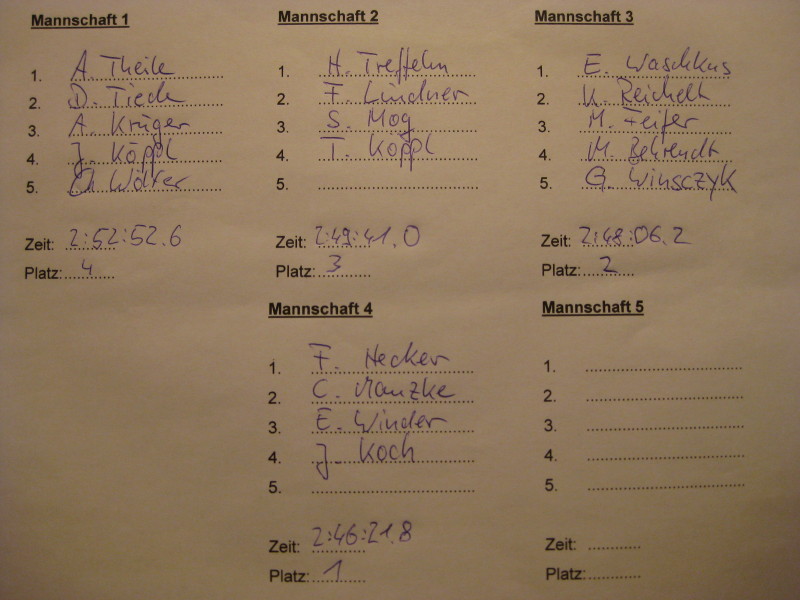 Mannschaft 1
1. A. Theile
2. D. Tiede
3. A. Krüger
4. J. Köppl
5. Wölfer
Zeit: 2:52:52.6
Platz: 4
Mannschaft 2
1. H. Treffehn
2. F. Lindner
3. S. Mog
4. T. Köppl
5.
Zeit: 2:49:41.0
Platz: 3
Mannschaft 3
1. E. Waschkus
2. K. Reichelt
3. M. Feifer
4. M. Behrendt
5. G. Winsczyk
Zeit: 2:48:06.2
Platz: 2
Mannschaft 4
1. F. Hecker
2. C. Manzke
3. E. Winder
4. J. Koch
5.
Zeit: 2:46:21.8
Platz: 1
Mannschaft 5
1.
2.
3.
4.
5.
Zeit:
Platz: